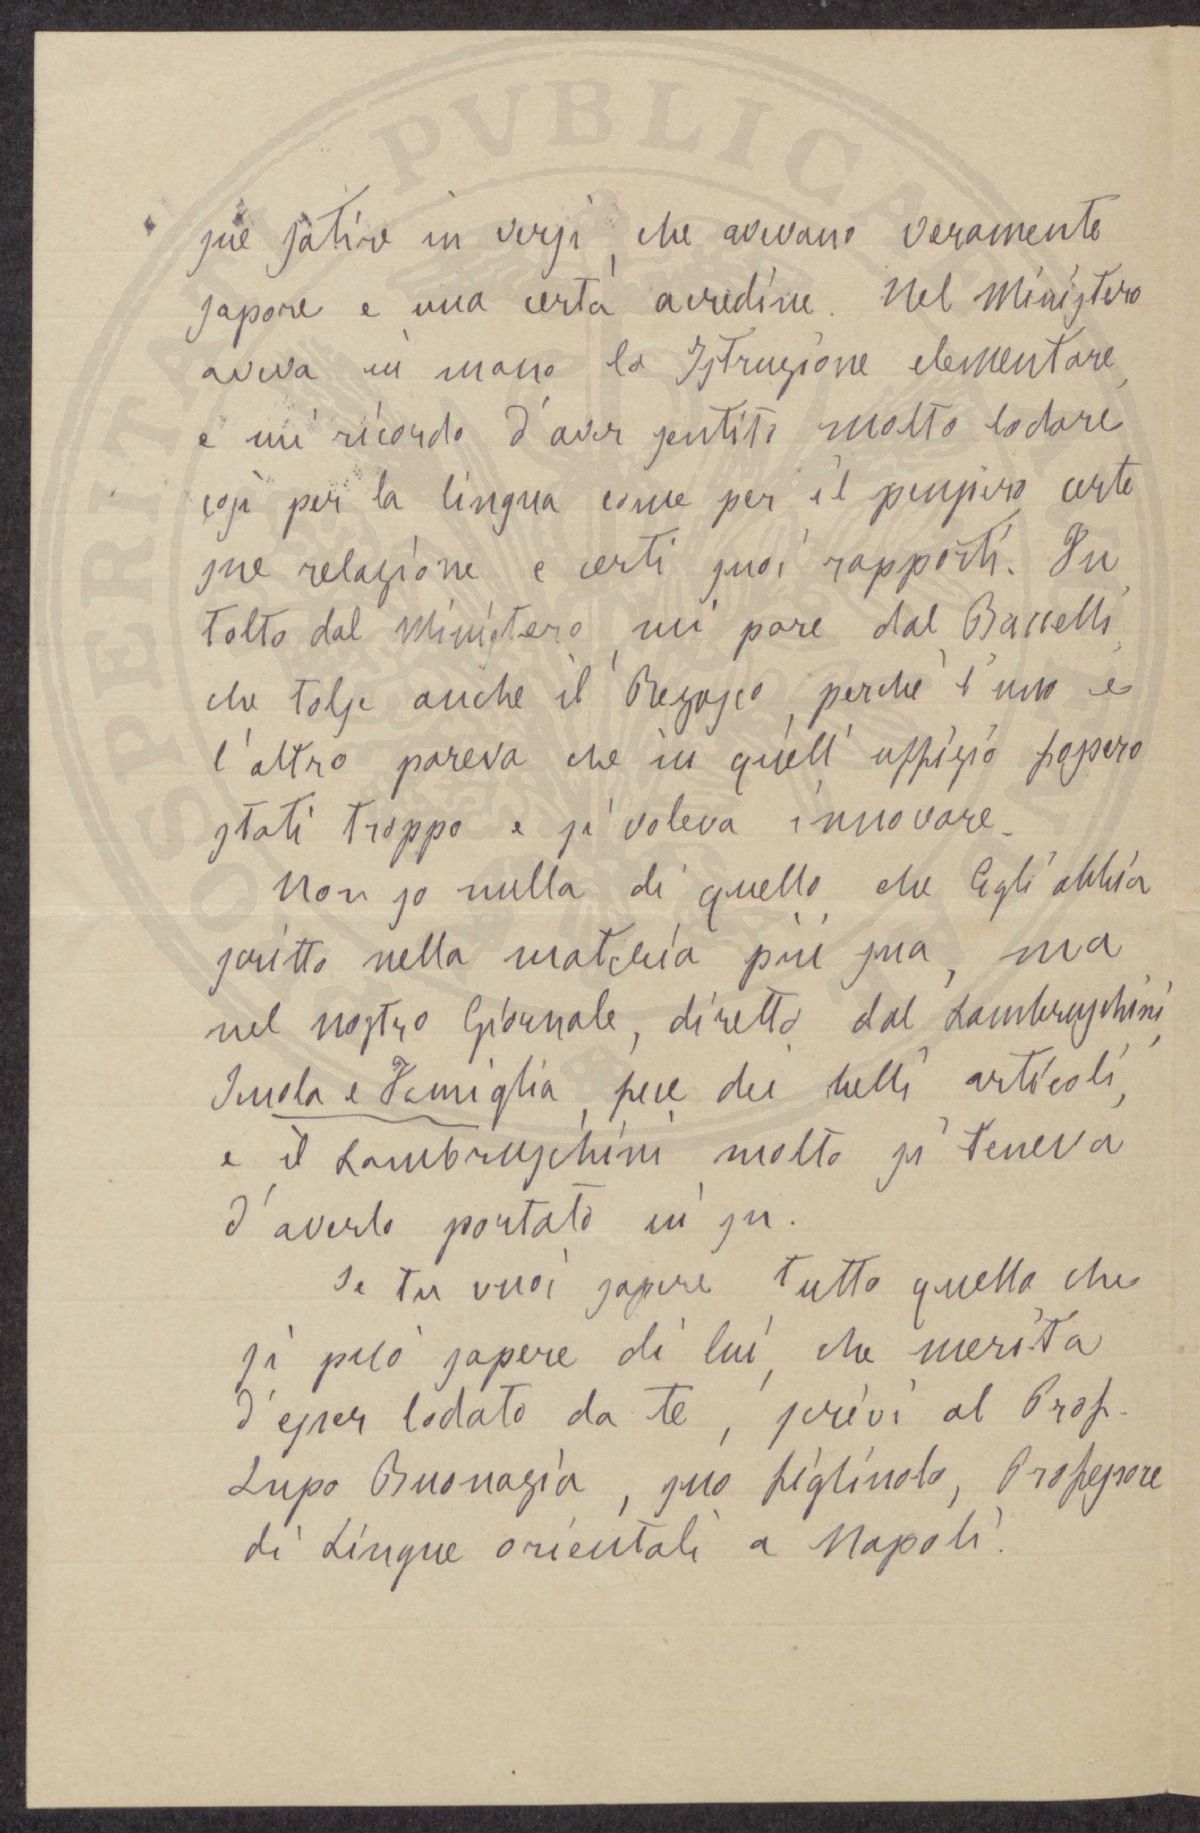 sue satire in versi, che avevano veramente
sapore e una certa acredine. Nel Ministero
aveva in mano la Istruzione elementare,
e mi ricordo d'aver sentito molto lodare
così per la lingua come per il pensiero certe
sue relazione e certi suoi rapporti. Fu
tolto dal Ministero, mi pare dal Baccelli,
che tolse anche il Rezasco, perchè l'uno e
l'altro pareva che in quell'uffizio fossero
stati troppo e si voleva innovare.
Non so nulla di quello che Egli abbia
scritto nella materia più sua, ma
nel nostro Giornale, diretto dal Lambruschini,
Scuola e Famiglia, fece dei belli articoli,
e il Lambruschini molto si teneva
d'averlo portato in su.
Se tu vuoi sapere tutto quello che
si può sapere di lui, che merita
d'esser lodato da te, scrivi al Prof.
Lupo Buonazia, suo figliuolo, Professore
di Lingue orientali a Napoli.
PROSPERITATI PVBLICAE